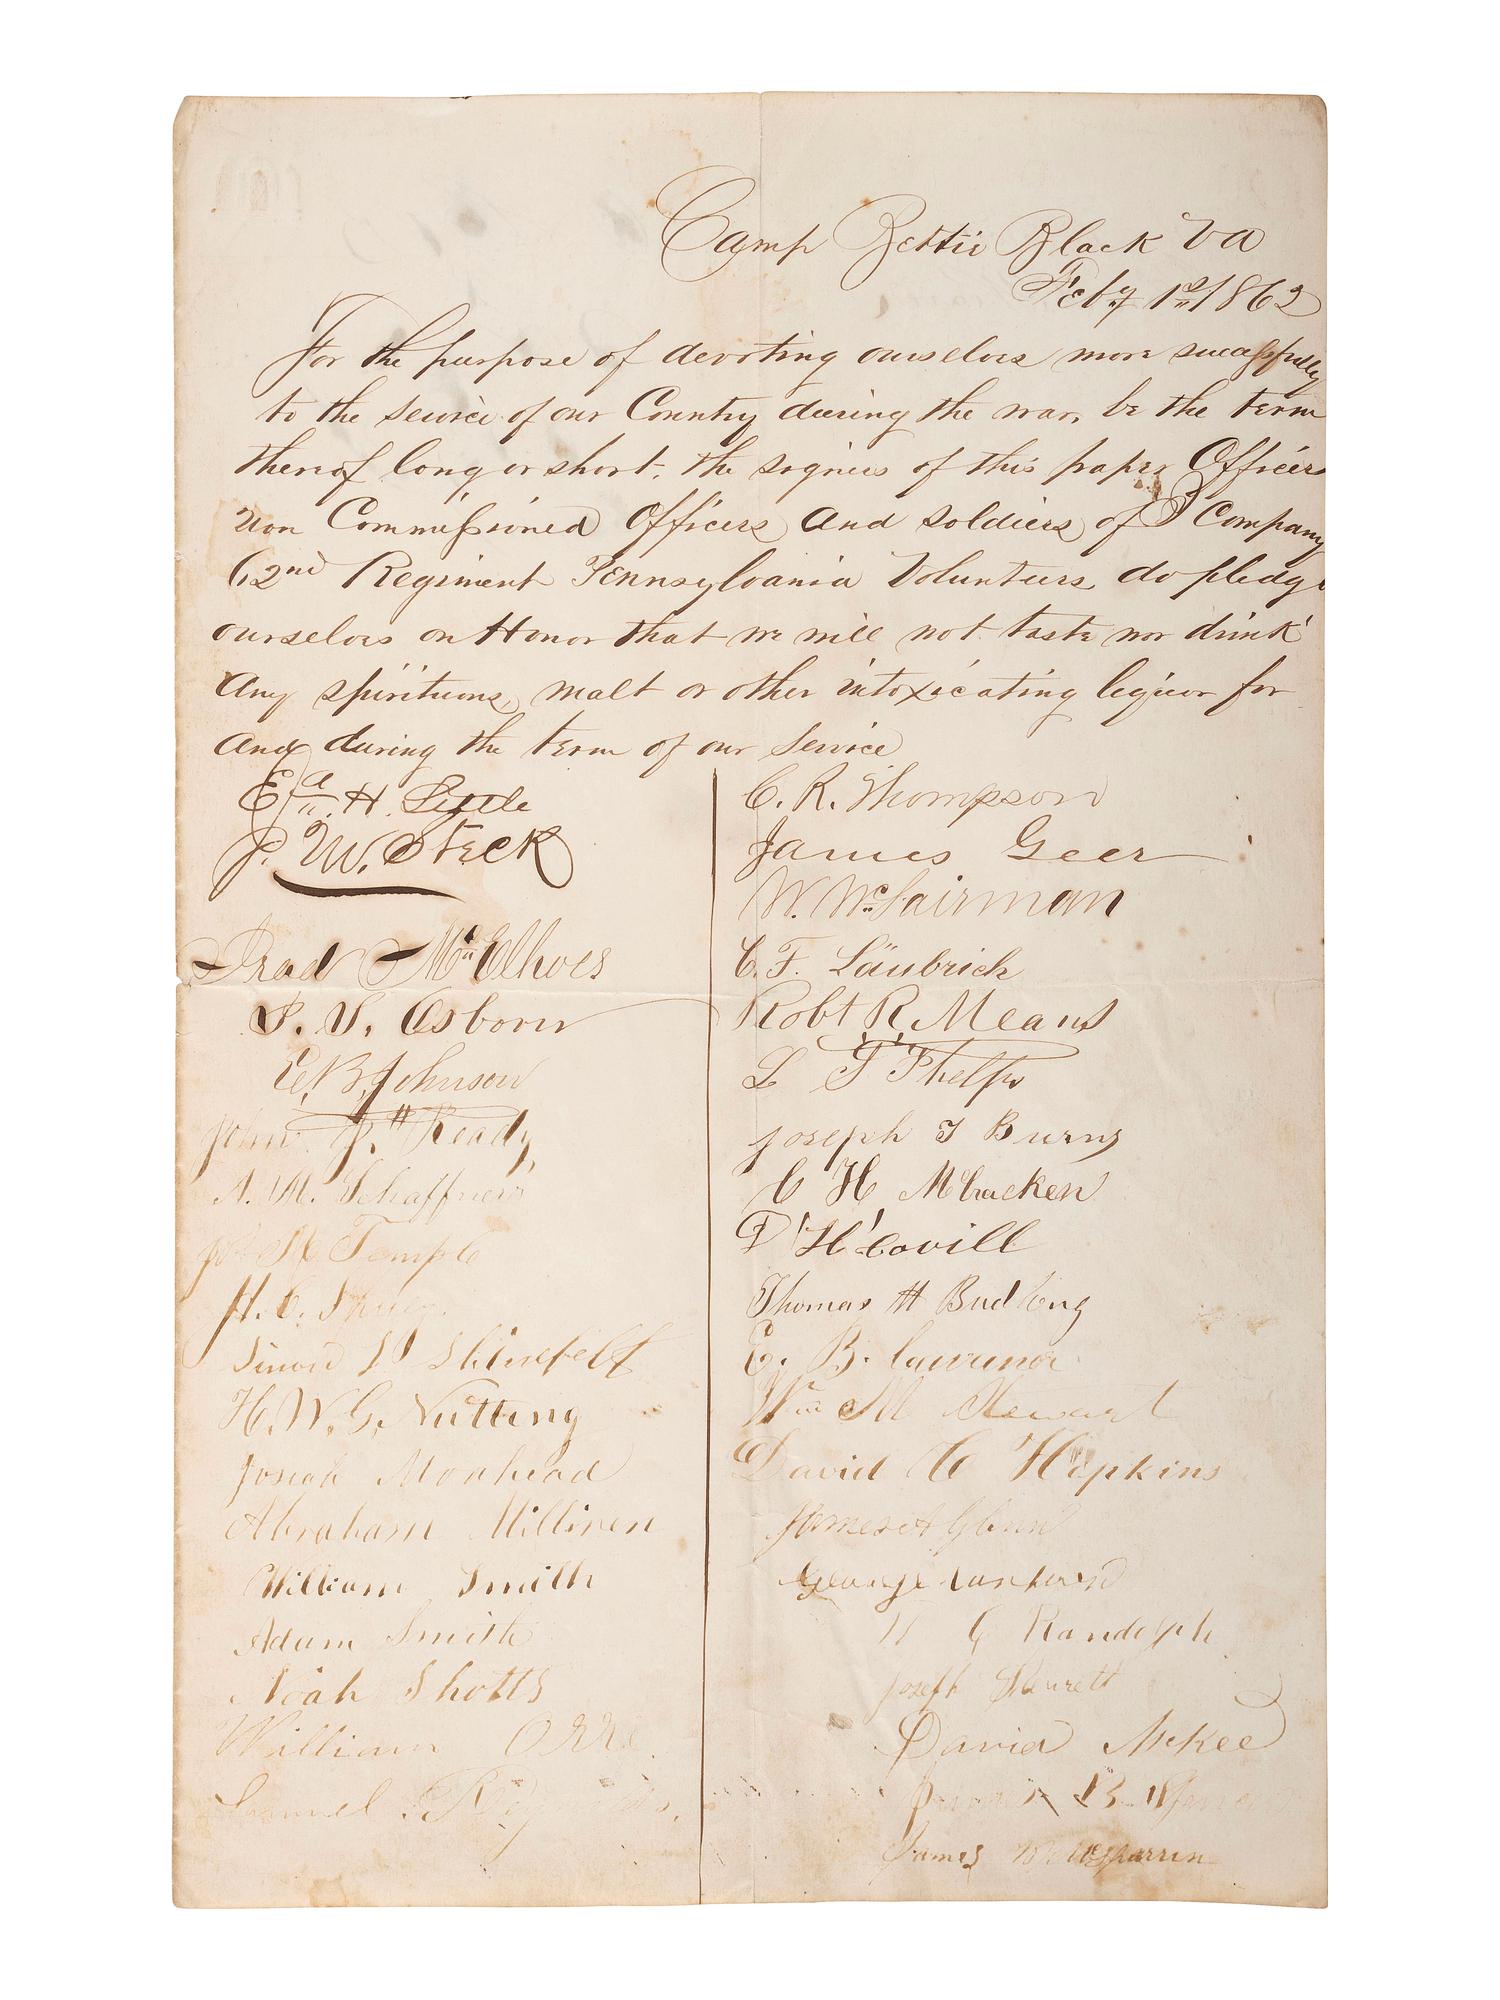 Camp Bettie Black Va
Feby 1st 1862
For the purpose of devoting ourselves more successfully
to the service of our Country during the war, be the term
thereof long or short, the signers of this paper Officers
non Commissioned Officers and soldiers of I Company
62nd Regiment Pennsylvania Volunteers, do pledge
ourselves on Honor that we will not taste nor drink
any spirituous, malt or other intoxicating liquor for
and during the term of our service
Edn. H. Little
J. W. Steck
Irad McElhoes
S. S. Osborn
E. B. Johnson
John J. Ready
A. M. Schaffner
M Temple
H. C.
Simon
H. W. G. Nutting
Josiah Morhead
Abraham Milliren
William Smith
Adam Smith
Noah Shotts
William Orr
Samuel
C. R. Thompson
James Geer
W. McFairman
C. F. Läubrich
Robt R. Means
L T Phelps
Joseph T Burns
C H McCracken
D H Covill
Thomas H Budlong
E. B. Lawrence
Wm M Stewart
David C Hopkins
James A Glenn
George
G Randolph
Joseph
David McKee
B.
James